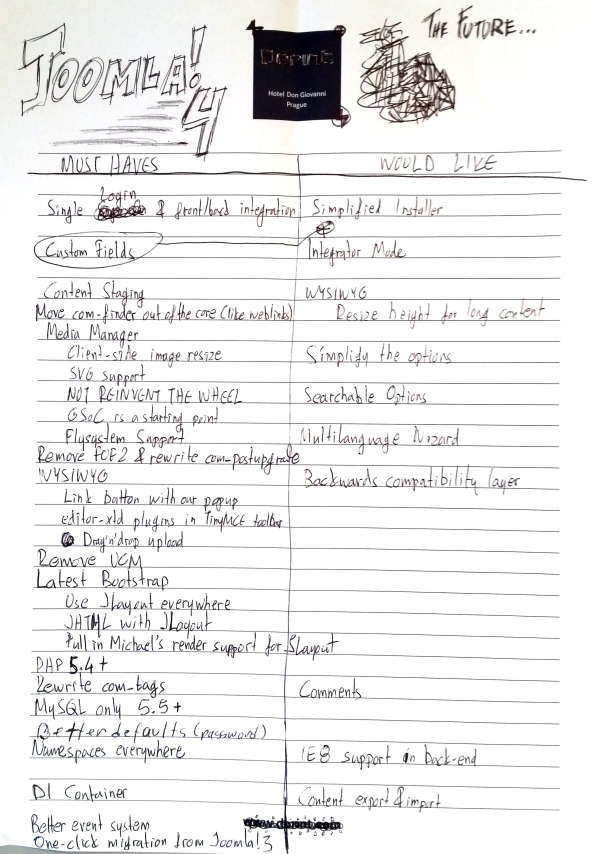 JOOMLA! 4
Dorint
Hotel Don Giovanni
Prague
THE FUTURE...
MUST HAVES
WOULD LIKE
Login
Single & front/back integration
Simplified Installer
Custom Fields
Integrator Mode
Content Staging
WYSIWYG
Move com_finder out of the core (like weblinks)
Resize height for long content
Media Manager
Client-side image resize
Simplify the options
SVG support
NOT REINVENT THE WHEEL
Searchable Options
GSoC is a starting point
Flysystem Support
Multilanguage Wizard
Remove FOF2 & rewrite com_postupgrate
WYSIWYG
Backwards compatibility layer
Link button with our popup
editor-xtd plugins in TinyMCE toolbar
Drag'n'drop upload
Remove UCM
Latest Bootstrap
Use JLayout everywhere
JHTML with JLayout
Pull in Michael's render support for JLayout
PHP 5.4+
Rewrite com_tags
Comments
MySQL only 5.5+
Better defaults (password)
Namespaces everywhere
IE8 support in back-end
DI Container
Content export & import
Better event system
One-click migration from Joomla!3